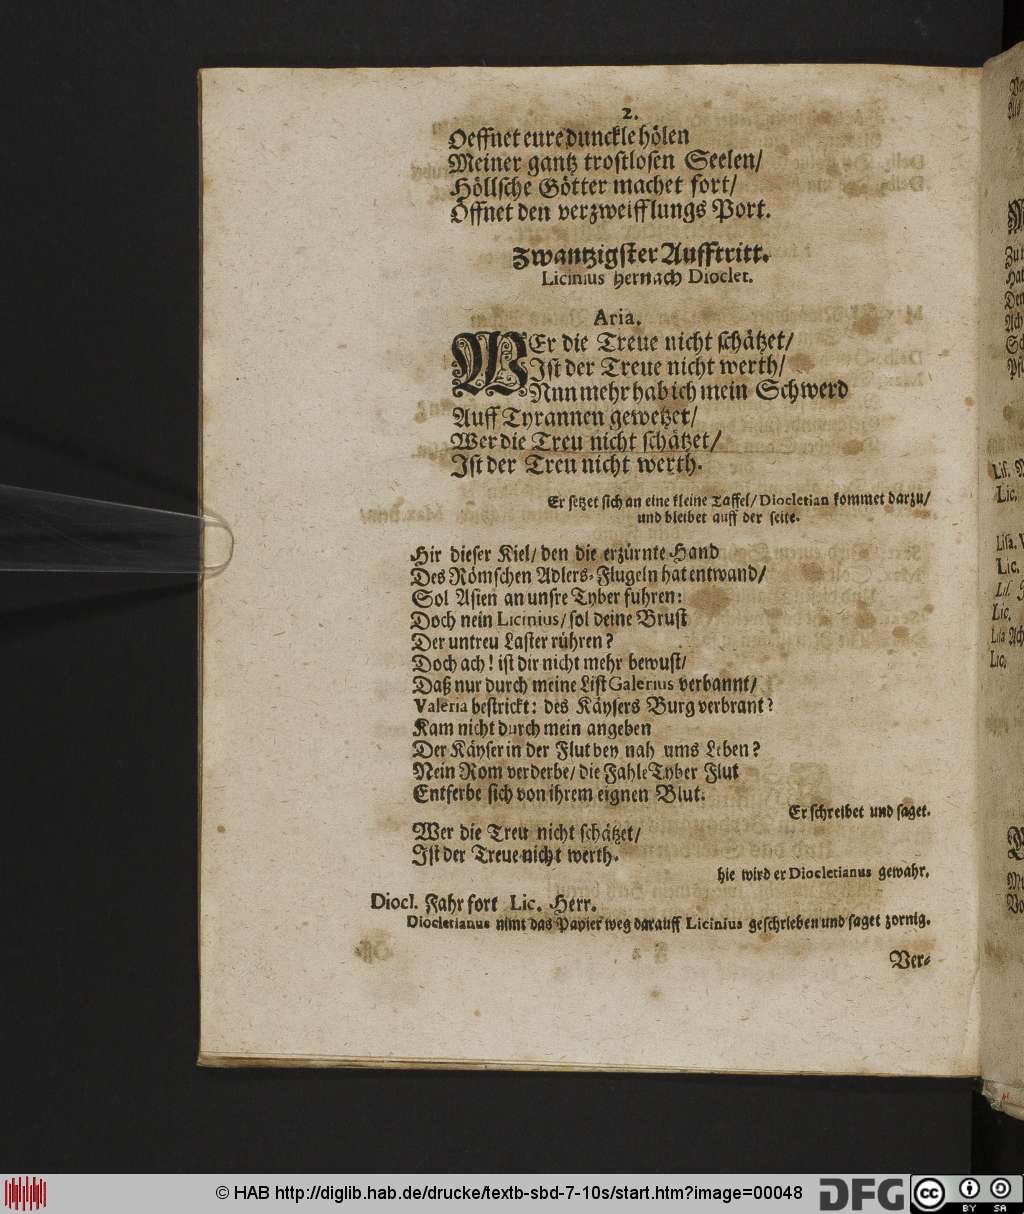 2.
Oeffnet eure dunckle hölen
Meiner gantz trostlosen Seelen/
Höllsche Götter machet fort/
Öffnet den verzweifflungs Port.
Zwantzigster Aufftritt.
Licinius hernach Dioclet.
Aria.
WEr die Treue nicht schätzet/
Ist der Treue nicht werth/
Nunmehr hab ich mein Schwerd
Auff Tyrannen gewetzet/
Wer die Treu nicht schätzet/
Ist der Treu nicht werth.
Er setzet sich an eine kleine Taffel/ Diocletian kommet darzu/
und bleibet auff der seite.
Hir dieser Kiel/ den die erzürnte Hand
Des Römschen Adlers-Flugeln hat entwand/
Sol Asien an unsre Tyber fuhren:
Doch nein Licinius/ sol deine Brust
Der untreu Laster rühren?
Doch ach! ist dir nicht mehr bewust/
Daß nur durch meine List Galerius verbannt/
Valeria bestrickt: des Käysers Burg verbrant?
Kam nicht durch mein angeben
Der Käyser in der Flut bey nah ums Leben?
Nein Rom verderbe/ die Fahle Tyber Flut
Entferbe sich von ihrem eignen Blut.
Er schreibet und saget.
Wer die Treu nicht schätzet/
Ist der Treue nicht werth.
hie wird er Diocletianus gewahr.
Diocl. Fahr fort Lic. Herr.
Diocletianus nimt das Papier weg darauff Licinius geschrieben und saget zornig.
Ver-
© HAB http://diglib.hab.de/drucke/textb-sbd-7-10s/start.htm?image=00048
DFG
cc
BY SA